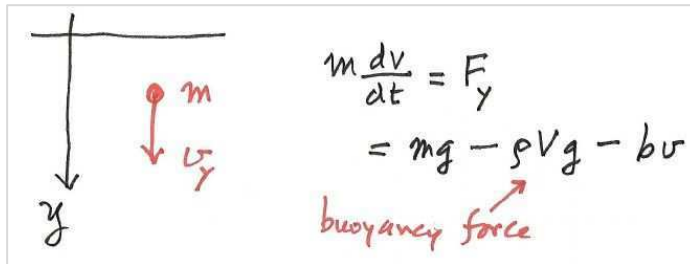 m
v_y
y
m dv/dt = F_y
= mg - ρVg - bv
buoyancy force